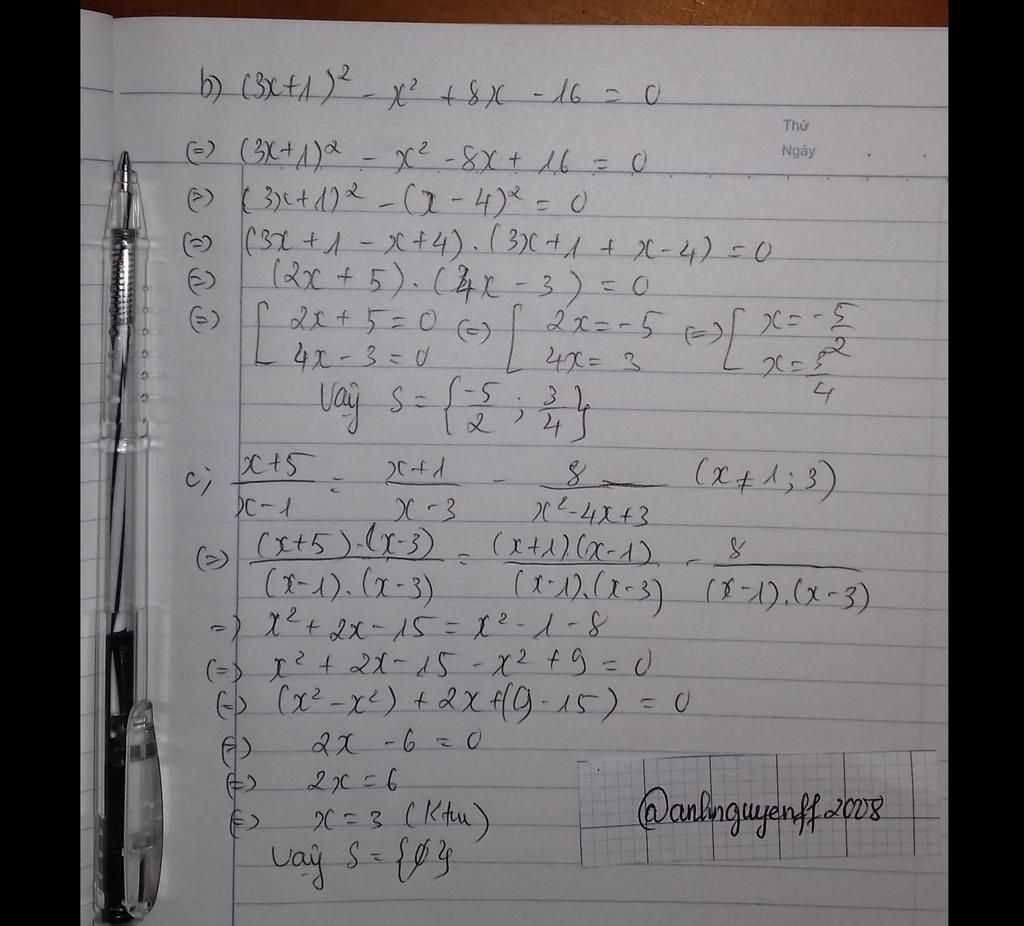 b) (3x+1)² - x² + 8x - 16 = 0
Thứ
Ngày
(=) (3x+1)² - x² - 8x + 16 = 0
(=) (3x+1)² - (x - 4)² = 0
(=) (3x + 1 - x + 4) . (3x + 1 + x - 4) = 0
(=) (2x + 5) . (4x - 3) = 0
(=) [ 2x + 5 = 0 (=) [ 2x = -5 (=) [ x = -5/2
4x - 3 = 0 4x = 3 x = 3/4
Vaỹ S = { -5/2 ; 3/4 }
c; (x+5)/(x-1) = (x+1)/(x-3) - 8/(x²-4x+3) (x ≠ 1; 3)
(=) (x+5).(x-3)/(x-1).(x-3) = (x+1)(x-1)/(x-1).(x-3) - 8/(x-1).(x-3)
=) x² + 2x - 15 = x² - 1 - 8
(=) x² + 2x - 15 - x² + 9 = 0
(=) (x² - x²) + 2x + (9 - 15) = 0
(=) 2x - 6 = 0
(=) 2x = 6
(=) x = 3 (Ktm)
Vaỹ S = {∅}
@anhnguyenff2008